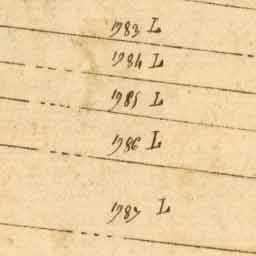 1783 L
1784 L
1785 L
1786 L
1787 L